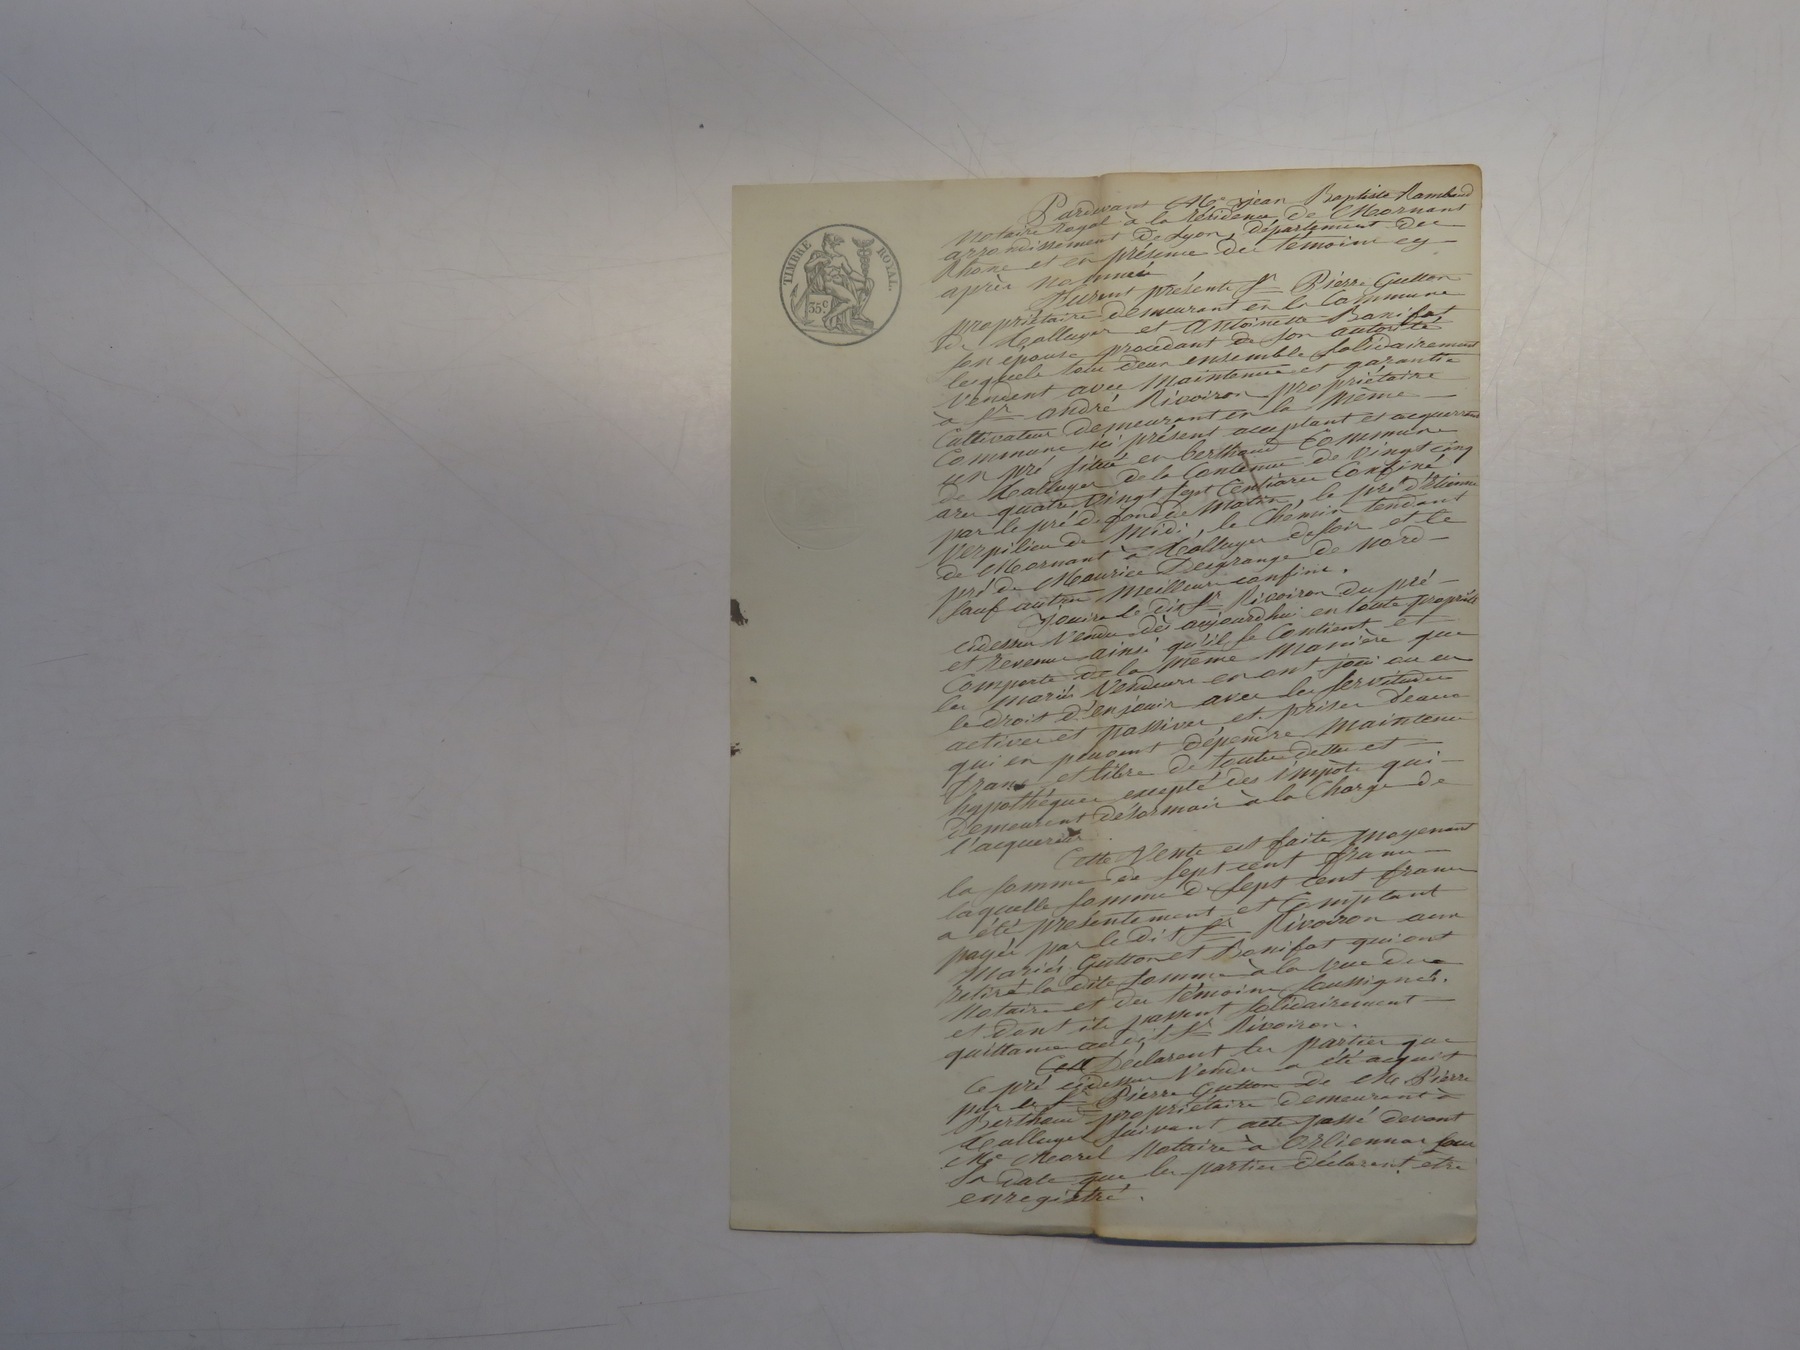 TIMBRE ROYAL.
35 c
Pardevant Me jean Baptiste Rambaud
Notaire Royal à la résidence de Mornant
arrondissement de Lyon, département du
Rhône et en présence des témoins cy-
après nommés
Furent présents Sr Pierre Gutton
propriétaire demeurant en la Commune
de Talluyer et Antoinette Bonifat
son épouse procédant de son autorité
lesquels tous deux ensemble solidairement
Vendent avec Maintenue et garantie
à Sr andré Rivoiron propriétaire
Cultivateur demeurant en la même
Commune ici présent acceptant et acquerrant
un pré situé en berthaud Commune
de Talluyer de la Contenue de Vingt cinq
ares quatre Vingt sept Centiares Confiné
par le pré de fond de Matin, le pré d'Etienne
Verpilieu de Midi, le Chemin tendant
de Mornant à Talluyer de soir et le
pré de Maurice Desgrange de nord-
sauf autres meilleurs confins.
Jouira le dit Sr Rivoiron du pré-
cidessus Vendu dès aujourdhui en toute propriété
et revenus ainsi qu'il se Contient et
Comporte de la même Manière que
les mariés Vendeurs en ont joui ou eu
le droit d'en jouir avec les servitudes
actives et passives et prises d'eaux
qui en peuvent dépendre Maintenu
franc et libre de toutes dettes et
hypothèques excepté des impôts qui-
demeurent désormais à la Charge de
l'acquereur
Cette Vente est faite moyenant
la somme de sept cent francs
laquelle somme de sept cent francs
a été présentement et Comptant
payée par le dit Sr Rivoiron aux
Mariés Gutton et Bonifat qui ont
retiré la dite somme à la vue du
Notaire et des témoins soussignés.
et dont ils passent solidairement
quittance audit Sr Rivoiron.
Cett Déclarent les parties que
le pré cidessus Vendu a été acquit
par le Sr Pierre Gutton de Me Pierre
Berthaud propriétaire demeurant à
Talluyer suivant acte passé devant
Me Morel Notaire à Orliennas sous
sa date que les parties déclarent etre
enregistré.